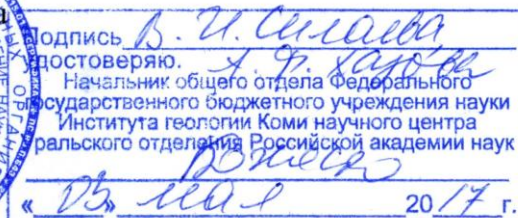 а
Подпись В. И. Силаева
удостоверяю. А. Ф. Хазова
Начальник общего отдела Федерального
государственного бюджетного учреждения науки
Института геологии Коми научного центра
Уральского отделения Российской академии наук
« 03 » мая 2017 г.